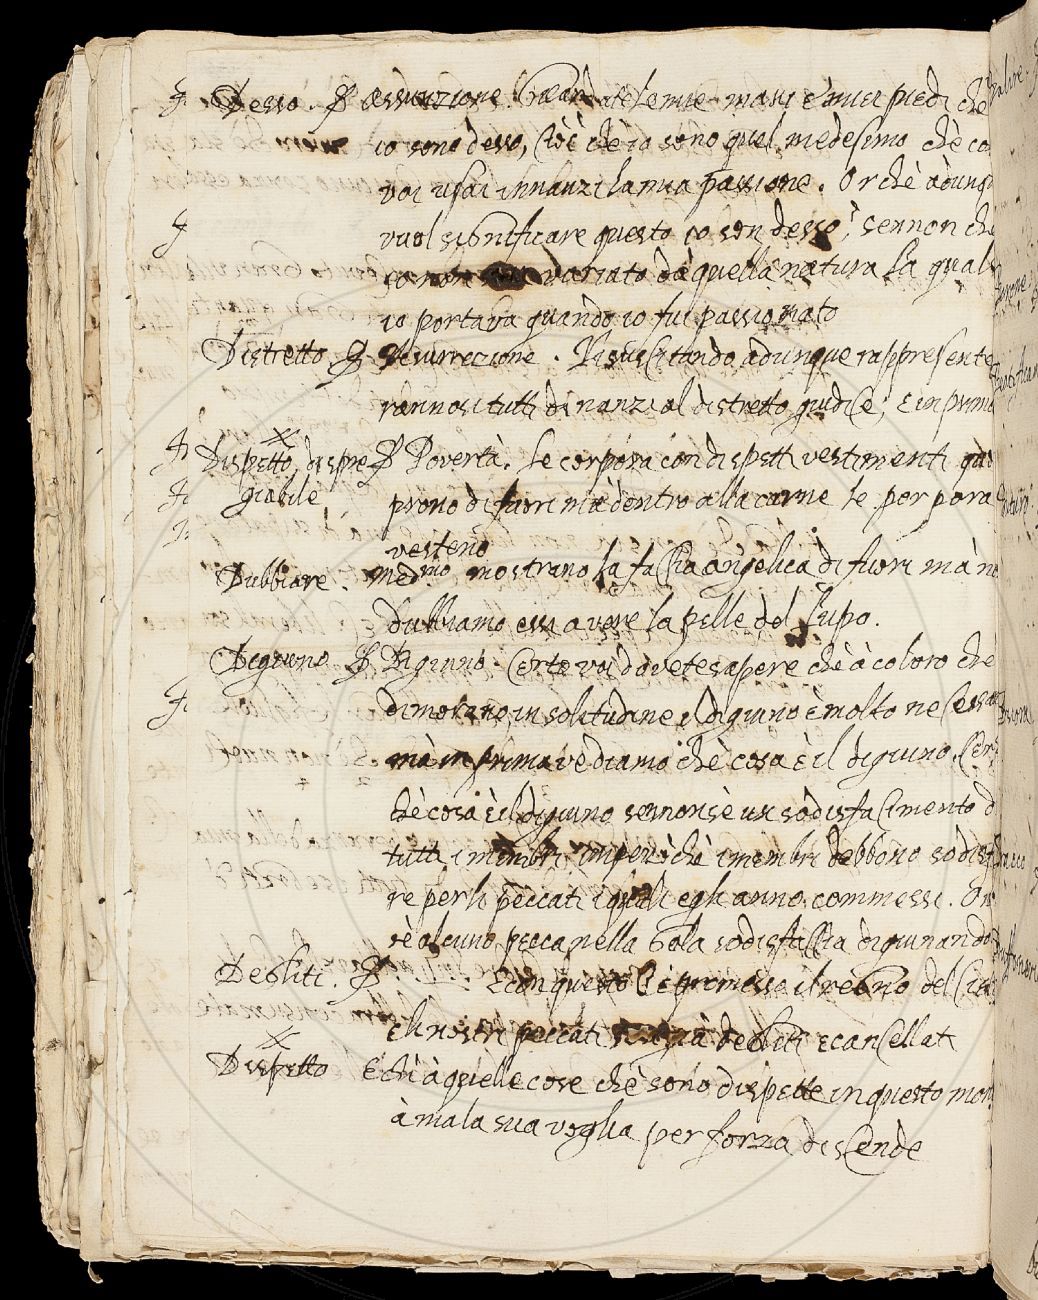 Desso. P. Assunzione. Guardate le mie mani e miei piedi che
io sono desso, cioè chè io sono quel medesimo chè co
voi usai innanzi la mia passione. Or chè adunq
vuol significare questo io son desso, sennon che
io non variato dà quella natura la qual
io portava quando io fui passionato
Distretto. P. Resurrezione. Risuscitando adunque rappresente
rannosi tutti dinanzi al distretto giudice, e in prima
Dispetto, dispre P. Povertà. Le corpora con dispetti vestimenti
giabile prono di fuori mà dentro alla carne le porpora
vesteno
Dubbiare. med.mo mostrano la faccia angelica di fuori mà no
dubbiamo essi avere la pelle del Lupo.
Digiuno P. Digiuno. Certo voi dovete sapere chè à coloro che
dimorano in solitudine il digiuno è molto necessa
mà in prima vediamo chè cosa è il digiuno. Cer
chè cosa è il digiuno sennonsè un sodisfacimento d
tutti i membri imperò chè i membri debbono sodisf
re per li peccati i quali egli anno commessi. On
sè alcuno pecca nella Gola sodisfaccia digiunando
Debliti. P. E con questo ci è promesso il regno del Cie
e li nostri peccati debliti e cancellati
Dispetto E chi à quelle cose chè sono dispette in questo mon
à mala sua voglia per forza discende